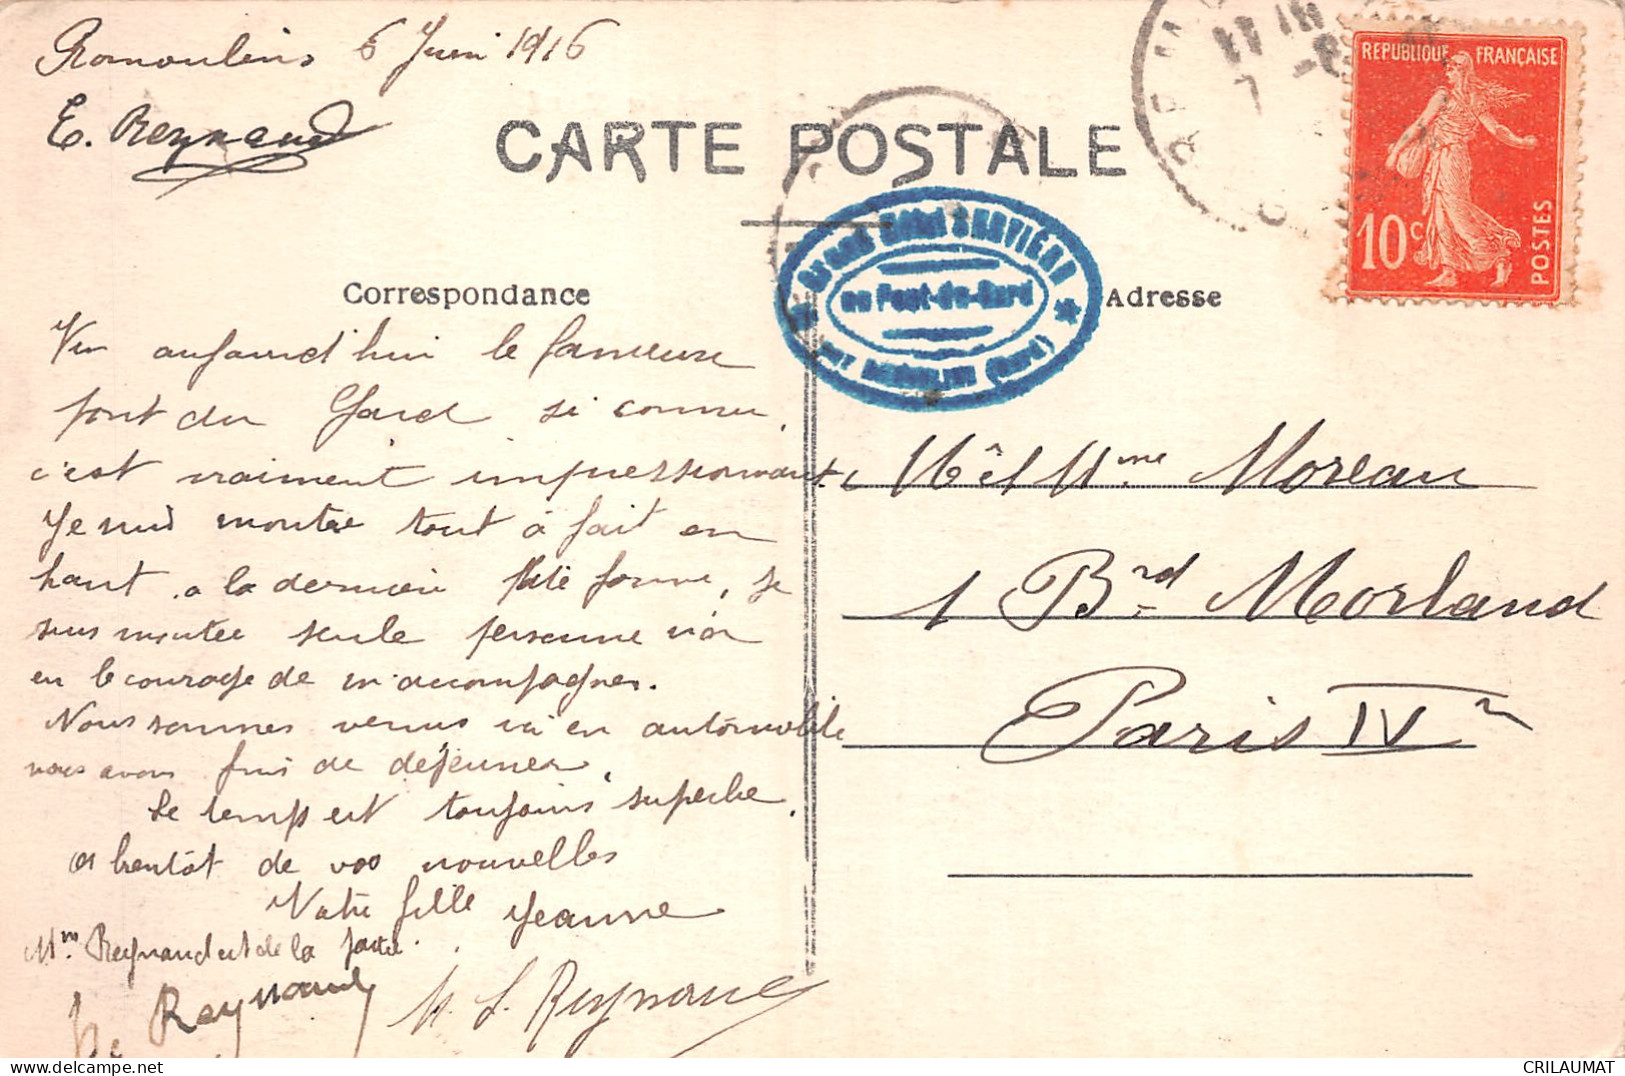 Remoulins 6 Juin 1916
E. Reynaud
CARTE POSTALE
REPUBLIQUE FRANÇAISE
10c
POSTES
Correspondance
Adresse
au Pont-du-Gard
(Gard)
Vu aujourd'hui le fameux
pont du Gard si connu,
c'est vraiment impressionnant.
Je suis montée tout à fait en
haut, a la dernière plate forme, je
suis montée seule personne n'a
eu le courage de m'accompagner.
Nous sommes venus ici en automobile
nous avons fini de déjeuner,
Le temps est toujours superbe.
A bientôt de vos nouvelles
Votre fille Jeanne
Mme Reynaud est de la partie.
Reynaud
M. L. Reynaud
Mr et Mme Moreau
1 Brd Morland
Paris IV
CRILAUMAT